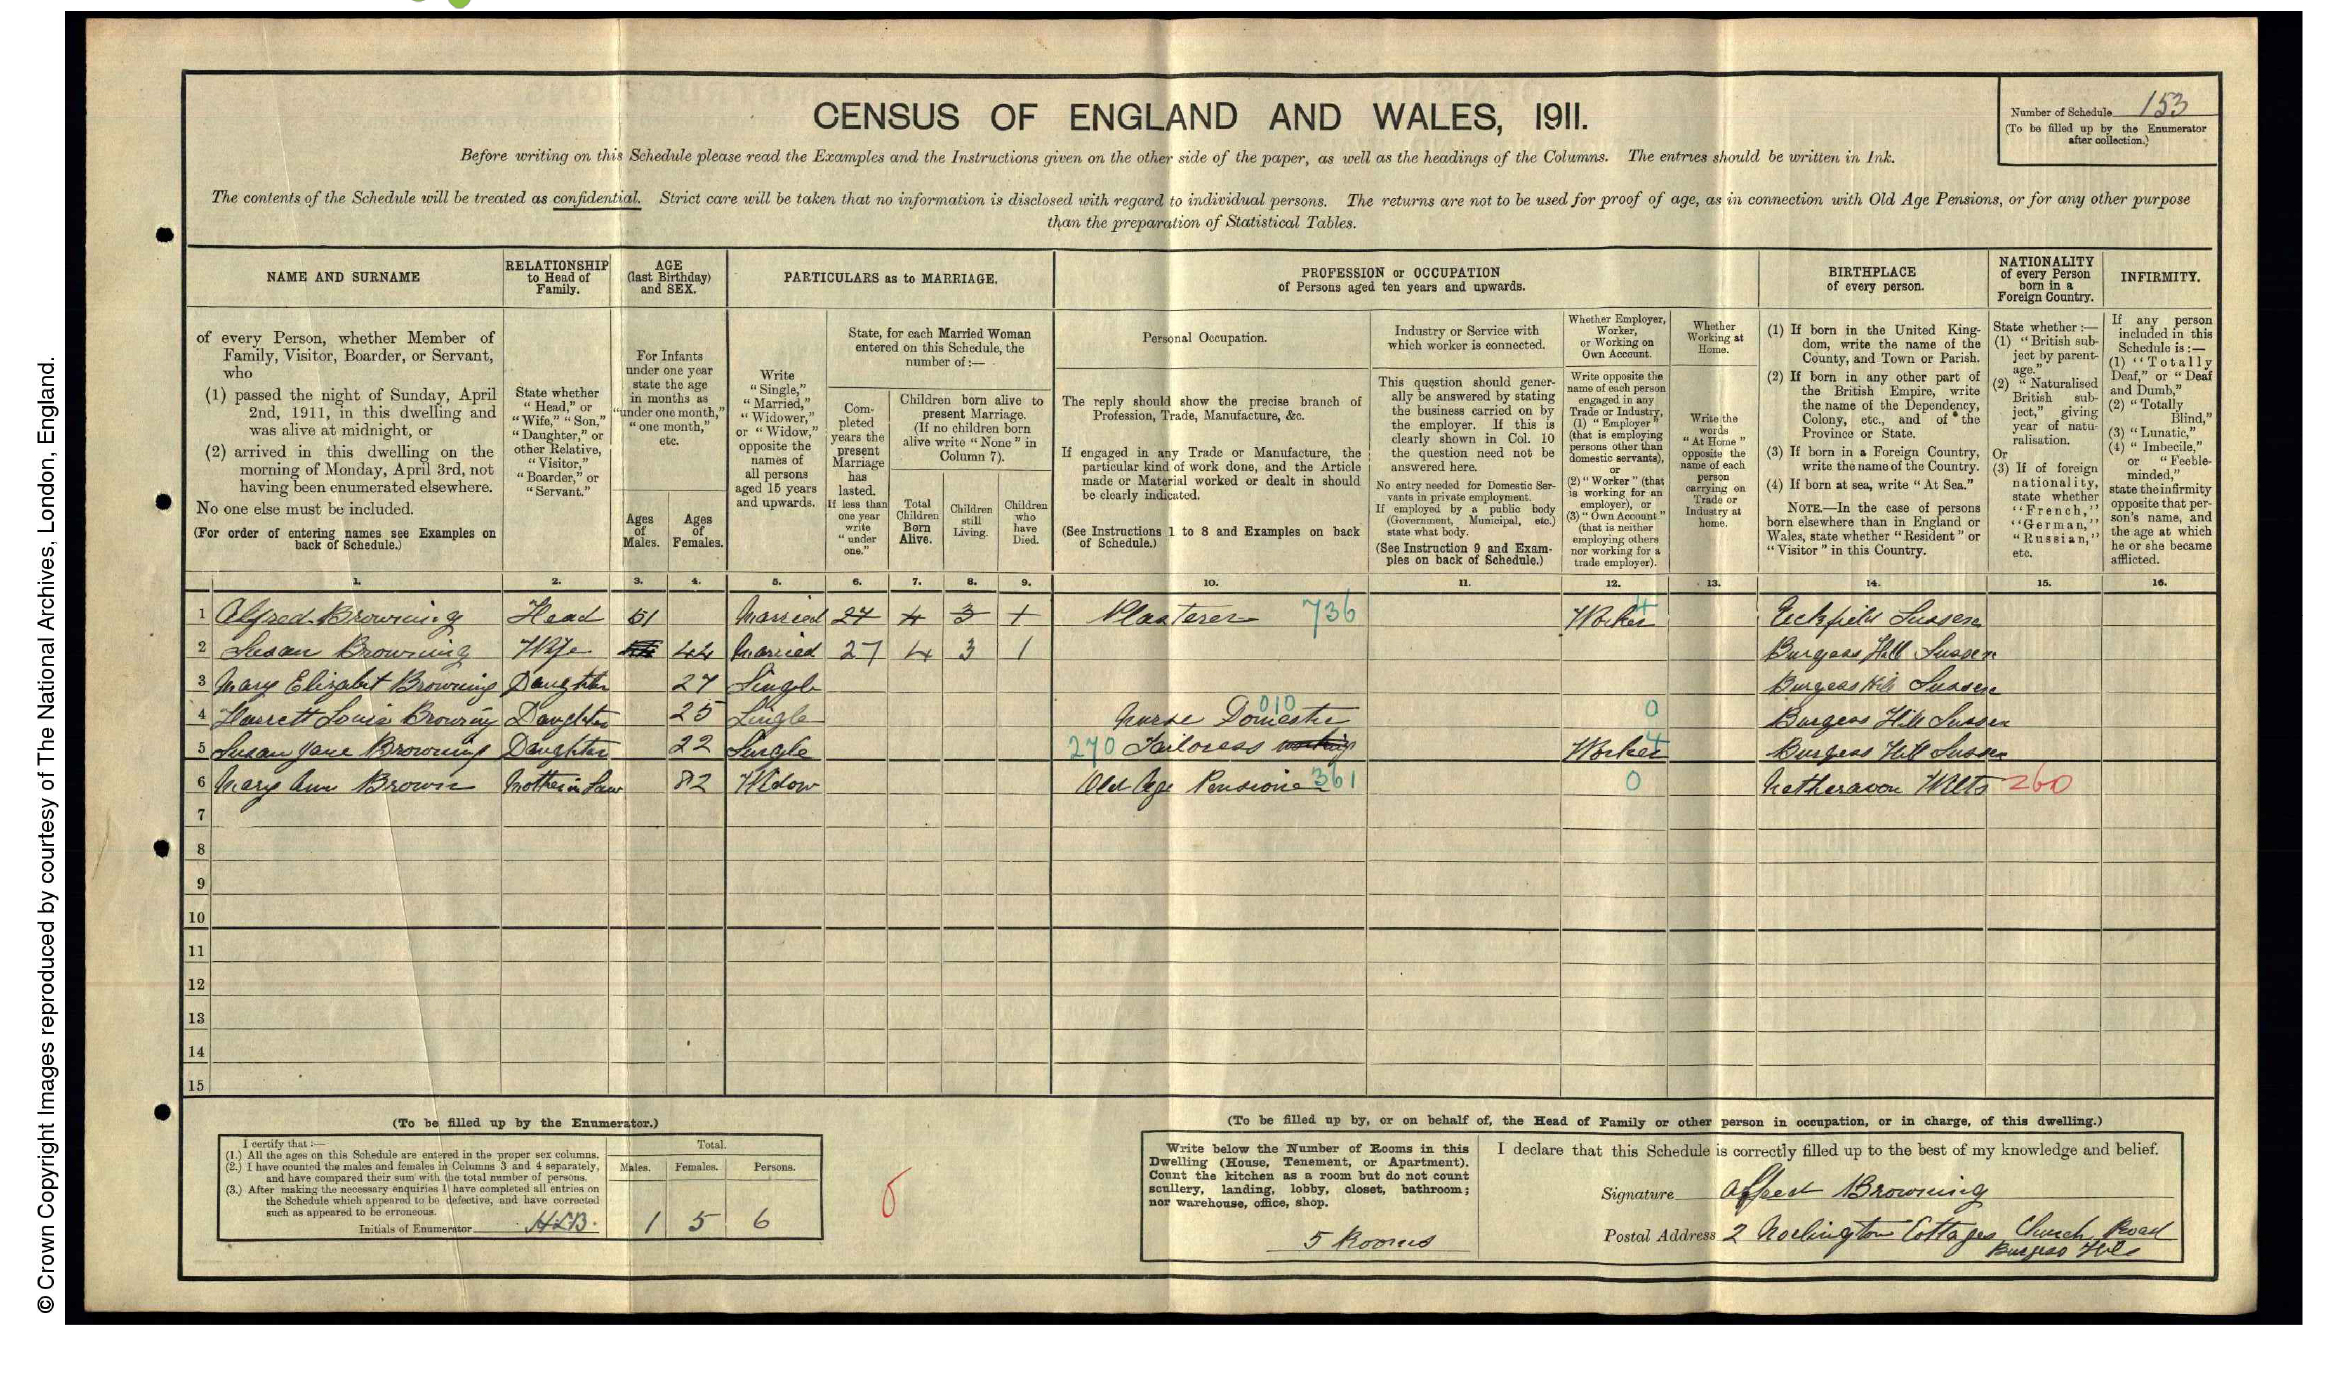 CENSUS OF ENGLAND AND WALES, 1911.
Number of Schedule 153
(To be filled up by the Enumerator after collection.)
Before writing on this Schedule please read the Examples and the Instructions given on the other side of the paper, as well as the headings of the Columns. The entries should be written in Ink.
The contents of the Schedule will be treated as confidential. Strict care will be taken that no information is disclosed with regard to individual persons. The returns are not to be used for proof of age, as in connection with Old Age Pensions, or for any other purpose
than the preparation of Statistical Tables.
NAME AND SURNAME
of every Person, whether Member of
Family, Visitor, Boarder, or Servant,
who
(1) passed the night of Sunday, April
2nd, 1911, in this dwelling and
was alive at midnight, or
(2) arrived in this dwelling on the
morning of Monday, April 3rd, not
having been enumerated elsewhere.
No one else must be included.
(For order of entering names see Examples on
back of Schedule.)
RELATIONSHIP
to Head of
Family.
State whether
"Head," or
"Wife," "Son,"
"Daughter," or
other Relative,
"Visitor,"
"Boarder," or
"Servant."
AGE
(last Birthday)
and SEX.
For Infants
under one year
state the age
in months as
"under one month,"
"one month,"
etc.
Ages
of
Males.
Ages
of
Females.
PARTICULARS as to MARRIAGE.
Write
"Single,"
"Married,"
"Widower,"
or "Widow,"
opposite the
names of
all persons
aged 15 years
and upwards.
State, for each Married Woman
entered on this Schedule, the
number of:—
Com-
pleted
years the
present
Marriage
has
lasted.
If less than
one year
write
"under
one."
Children born alive to
present Marriage.
(If no children born
alive write "None" in
Column 7).
Total
Children
Born
Alive.
Children
still
Living.
Children
who
have
Died.
PROFESSION or OCCUPATION
of Persons aged ten years and upwards.
Personal Occupation.
The reply should show the precise branch of
Profession, Trade, Manufacture, &c.
If engaged in any Trade or Manufacture, the
particular kind of work done, and the Article
made or Material worked or dealt in should
be clearly indicated.
(See Instructions 1 to 8 and Examples on back
of Schedule.)
Industry or Service with
which worker is connected.
This question should gener-
ally be answered by stating
the business carried on by
the employer. If this is
clearly shown in Col. 10
the question need not be
answered here.
No entry needed for Domestic Ser-
vants in private employment.
If employed by a public body
(Government, Municipal, etc.)
state what body.
(See Instruction 9 and Exam-
ples on back of Schedule.)
Whether Employer,
Worker,
or Working on
Own Account.
Write opposite the
name of each person
engaged in any
Trade or Industry,
(1) "Employer"
(that is employing
persons other than
domestic servants),
or
(2) "Worker" (that
is working for an
employer), or
(3) "Own Account"
(that is neither
employing others
nor working for a
trade employer).
Whether
Working at
Home.
Write the
words
"At Home"
opposite the
name of each
person
carrying on
Trade or
Industry at
home.
BIRTHPLACE
of every person.
(1) If born in the United King-
dom, write the name of the
County, and Town or Parish.
(2) If born in any other part of
the British Empire, write
the name of the Dependency,
Colony, etc., and of the
Province or State.
(3) If born in a Foreign Country,
write the name of the Country.
(4) If born at sea, write "At Sea."
NOTE.—In the case of persons
born elsewhere than in England or
Wales, state whether "Resident" or
"Visitor" in this Country.
NATIONALITY
of every Person
born in a
Foreign Country.
State whether:—
(1) "British sub-
ject by parent-
age."
(2) "Naturalised
British sub-
ject," giving
year of natu-
ralisation.
Or
(3) If of foreign
nationality,
state whether
"French,"
"German,"
"Russian,"
etc.
INFIRMITY.
If any person
included in this
Schedule is:—
(1) "Totally
Deaf," or "Deaf
and Dumb,"
(2) "Totally
Blind,"
(3) "Lunatic,"
(4) "Imbecile,"
or "Feeble-
minded,"
state the infirmity
opposite that per-
son's name, and
the age at which
he or she became
afflicted.
1. 2. 3. 4. 5. 6. 7. 8. 9. 10. 11. 12. 13. 14. 15. 16.
1 Alfred Browning Head 51 Married 27 4 3 1 Plasterer 736 Worker 4 Uckfield Sussex
2 Susan Browning Wife 44 Married 27 4 3 1 Burgess Hill Sussex
3 Mary Elizabet Browning Daughter 27 Single Burgess Hill Sussex
4 Harrett Louis Browning Daughter 25 Single Nurse Domestic 010 0 Burgess Hill Sussex
5 Susan Jane Browning Daughter 22 Single 270 Tailoress Worker 4 Burgess Hill Sussex
6 Mary Ann Brown Mother in Law 82 Widow Old Age Pensioner 361 0 Netheravon Wilts 260
7
8
9
10
11
12
13
14
15
(To be filled up by the Enumerator.)
I certify that:—
(1.) All the ages on this Schedule are entered in the proper sex columns.
(2.) I have counted the males and females in Columns 3 and 4 separately,
and have compared their sum with the total number of persons.
(3.) After making the necessary enquiries I have completed all entries on
the Schedule which appeared to be defective, and have corrected
such as appeared to be erroneous.
Initials of Enumerator HLB.
Total.
Males. Females. Persons.
1 5 6
(To be filled up by, or on behalf of, the Head of Family or other person in occupation, or in charge, of this dwelling.)
Write below the Number of Rooms in this
Dwelling (House, Tenement, or Apartment).
Count the kitchen as a room but do not count
scullery, landing, lobby, closet, bathroom;
nor warehouse, office, shop.
5 Rooms
I declare that this Schedule is correctly filled up to the best of my knowledge and belief.
Signature Alfred Browning
Postal Address 2 Norlington Cottages Church Road
Burgess Hill
© Crown Copyright Images reproduced by courtesy of The National Archives, London, England.